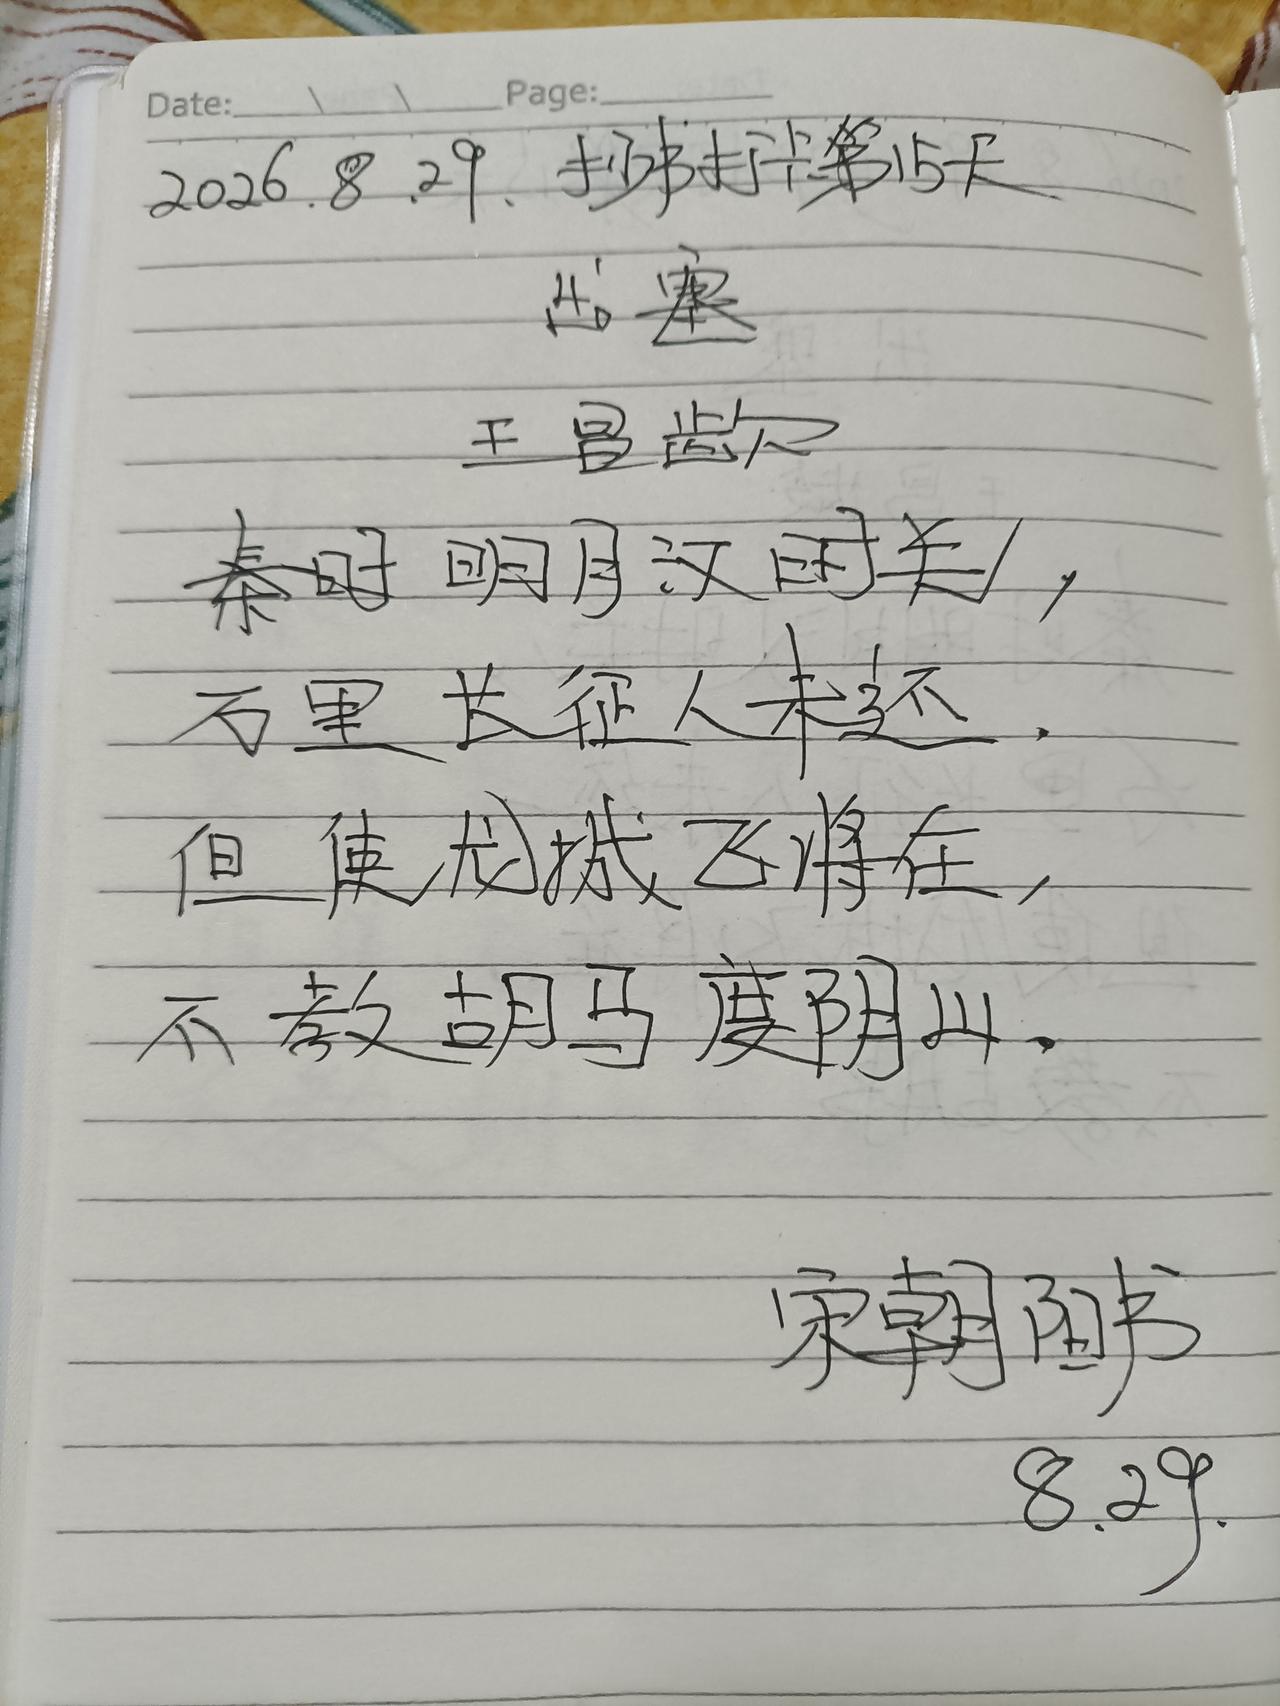 Date: \ \ Page:
2026.8.29. 抄书打卡第15天
出塞
王昌龄
秦时明月汉时关,
万里长征人未还.
但使龙城飞将在,
不教胡马度阴山.
宋朝阳书
8.29.